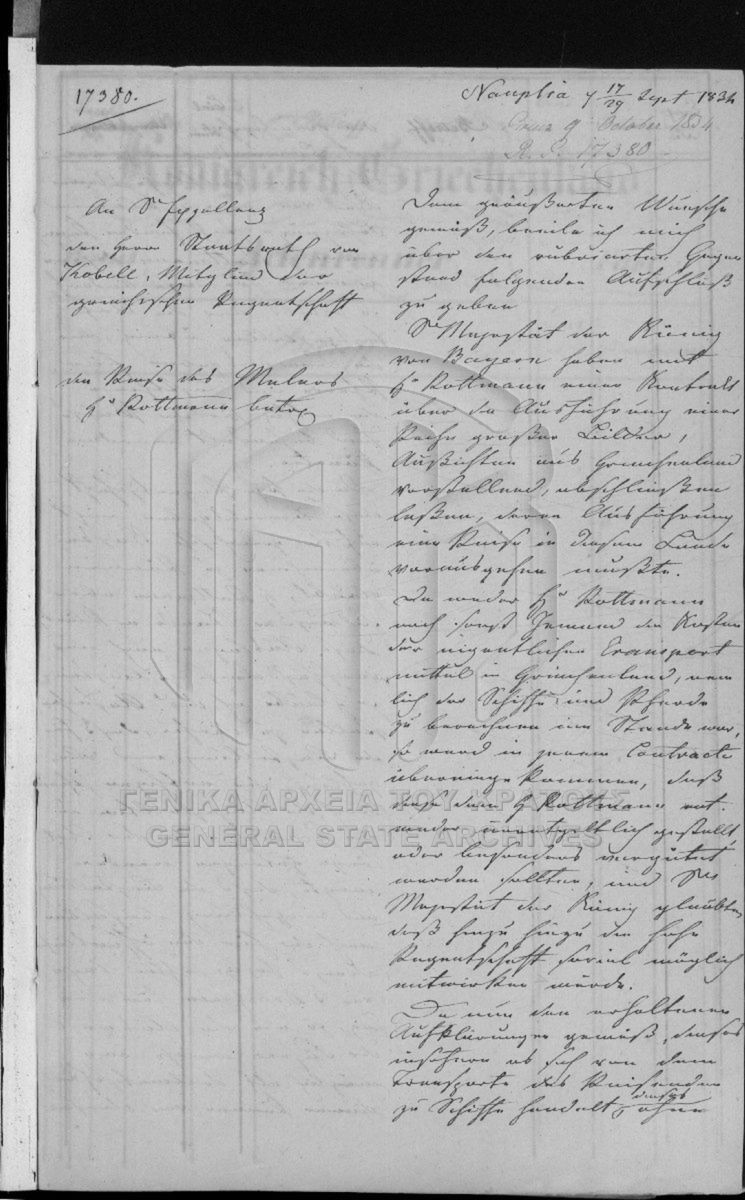 17380.
Nauplia d 17/29 Sept 1834
Praes. 9. October 1834
R. S. 17380
An Sr Excellenz
den Herrn Staatsrath von
Kobell, Mitglied der
griechischen Regentschaft
die Reise des Malers
Hr Rottmann betr
Dem geäußerten Wunsche
gemäß, beeile ich mich
über den rubrizirten Gegen
stand folgenden Aufschluß
zu geben
Sr Majestät der König
von Bayern haben mit
Hr Rottmann einen Kontrakt
über die Ausführung einer
Reihe großer Bilder,
Ansichten aus Griechenland
vorstellend, abschließen
laßen, deren Ausführung
eine Reise in diesem Lande
vorausgehen mußte.
Da weder Hr Rottmann
noch sonst Jemand die Kosten
der eigentlichen Transport
mittel in Griechenland, nem
lich der Schiffe und Pferde
zu berechnen im Stande war,
so ward in jenem Contracte
übereingekommen, daß
diese dem H Rottmann ent
weder unentgeltlich gestellt,
oder besonders vergütet
werden sollten, und Se
Majestät der König glaubten,
daß hiezu die hohe
Regentschaft soviel möglich
mitwirken würde.
Da nun den erhaltenen
Aufklärungen gemäß, dieses
insofern es sich von dem
Transporte des Reisenden
zu Schiffe handelt, dieses ohne
ΓΕΝΙΚΑ ΑΡΧΕΙΑ ΤΟΥ ΚΡΑΤΟΥΣ
GENERAL STATE ARCHIVES